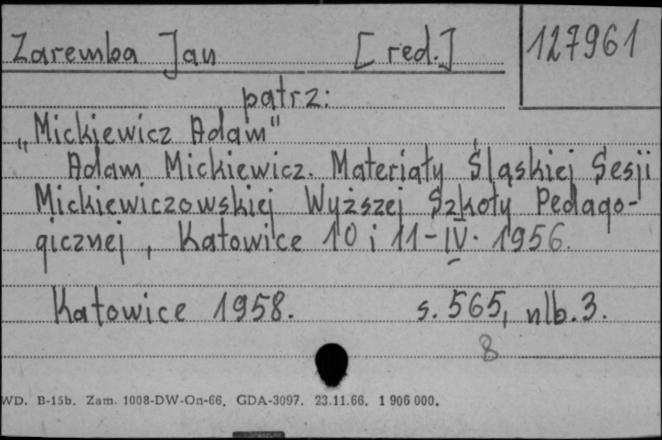 Zaremba Jan [red.] 127961
patrz:
„Mickiewicz Adam"
Adam Mickiewicz. Materiały Śląskiej Sesji
Mickiewiczowskiej Wyższej Szkoły Pedago-
gicznej, Katowice 10 i 11-IV. 1956.
Katowice 1958. s. 565, nlb. 3.
8
WD. B-15b. Zam. 1008-DW-On-66. GDA-3097. 23.11.66. 1 906 000.